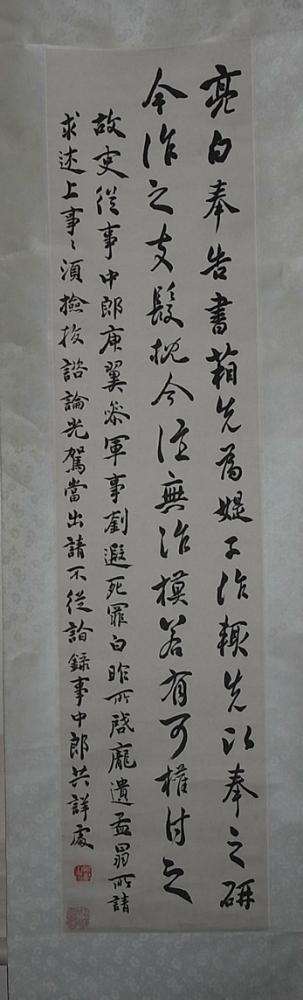 亮白奉告書箱先為媞子作輒先以奉之研
今作之支髮枕今注無作模若有可權付之
故吏從事中郎庾翼參軍事劉遐死罪白昨所啓龐遺孟昌所請
求述上事々須撿挍諮論光駕當出請不從詣錄事中郎共詳處